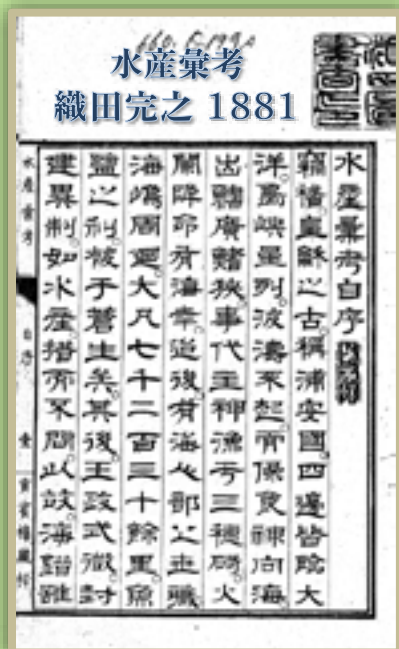 水産彙考
織田完之 1881
水産彙考自序
竊稽皇龢之古。稱浦安國。四邊皆臨大
洋。島嶼星列。波濤不起。保神向海
出鰭廣鰭狹。事代主神漁于三穂碕。火
闌降命有海幸。後有海部之職
海嶋周廻。大凡七千二百三十餘里。魚
鹽之利。被于蒼生矣。其後王政式微。封
建異制。如水産。措而不問。以故。海錯雖
水産彙考
自序
壹